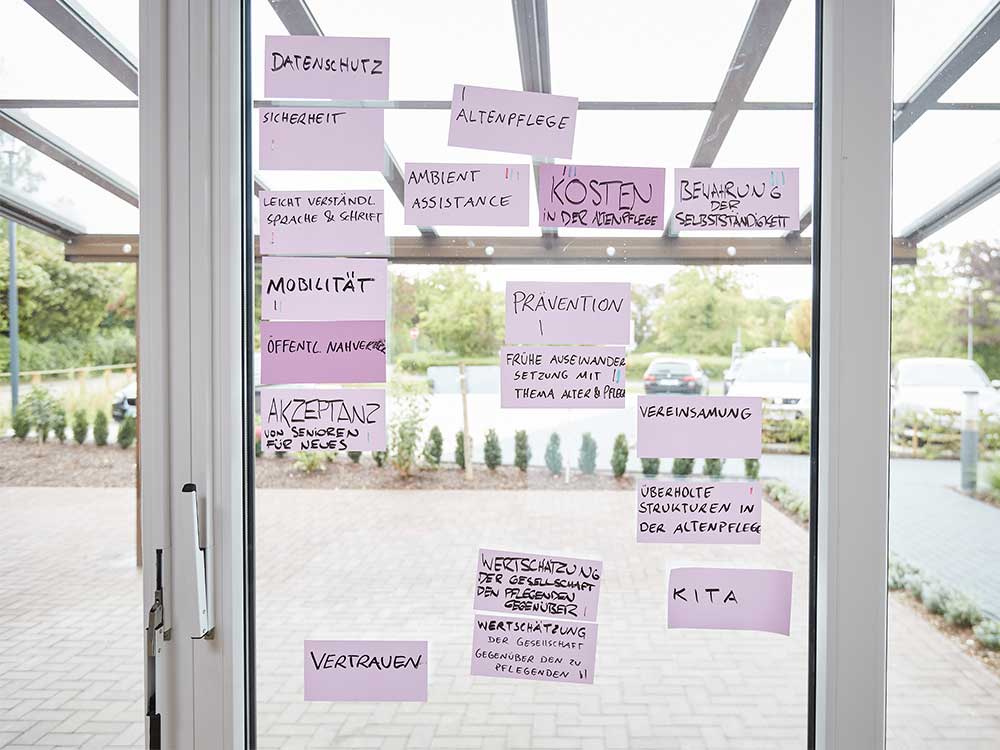 DATENSCHUTZ
SICHERHEIT
LEICHT VERSTÄNDL.
SPRACHE & SCHRIFT
MOBILITÄT
ÖFFENTL. NAHVERKEHR
AKZEPTANZ
VON SENIOREN
FÜR NEUES
ALTENPFLEGE
AMBIENT
ASSISTANCE
KOSTEN
IN DER ALTENPFLEGE
BEWAHRUNG
DER
SELBSTSTÄNDIGKEIT
PRÄVENTION
FRÜHE AUSEINANDER
SETZUNG MIT
THEMA ALTER & PFLEGE
VEREINSAMUNG
ÜBERHOLTE
STRUKTUREN IN
DER ALTENPFLEGE
WERTSCHÄTZUNG
DER GESELLSCHAFT
DEN PFLEGENDEN
GEGENÜBER
WERTSCHÄTZUNG
DER GESELLSCHAFT
GEGENÜBER DEN ZU
PFLEGENDEN
KITA
VERTRAUEN